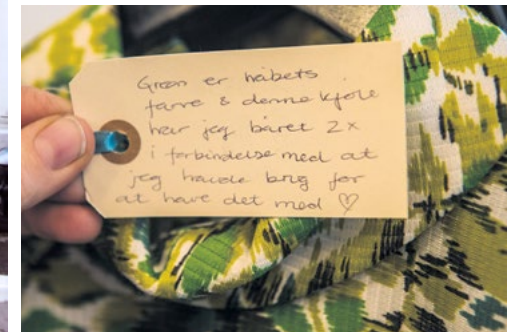 Grøn er håbets
farve & denne kjole
har jeg båret 2x
i forbindelse med at
jeg havde brug for
at have det med ♡